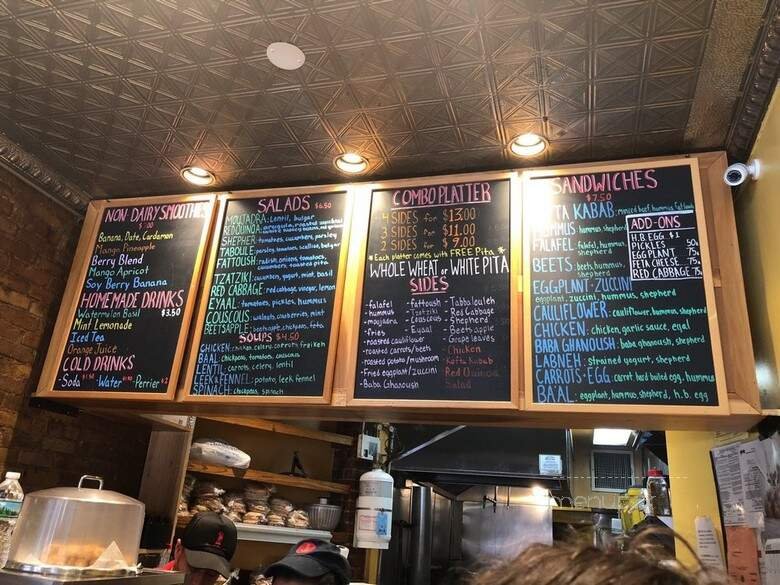 NON DAIRY SMOOTHIES
Banana, Date, Cardamon
Mango Pineapple
Berry Blend
Mango Apricot
Soy Berry Banana
HOMEMADE DRINKS
$3.50
Watermelon Basil
Mint Lemonade
Iced Tea
Orange Juice
COLD DRINKS
Soda Water Perrier
SALADS $6.50
MOUJADRA: lentil, bulgar
RED QUINOA:
SHEPHERD: tomatoes, cucumbers, parsley
TABOULE: parsley, tomatoes, scallion, bulgar
FATTOUSH: radish, onions, tomatoes,
cucumbers, toasted pita
TZATZIKI: cucumber, yogurt, mint, basil
RED CABBAGE: red cabbage, vinegar, lemon
EYAAL: tomatoes, pickles, hummus
COUSCOUS: walnuts, cranberries, mint
BEETS APPLE: beets, apple, chickpeas, feta
SOUPS $4.50
CHICKEN: chicken, celery, carrots
BAAL: chickpeas, tomatoes, couscous
LENTIL: carrots, celery, lentil
LEEK & FENNEL: potato, leek fennel
SPINACH: chickpeas, spinach
COMBO PLATTER
4 SIDES for $13.00
3 SIDES for $11.00
2 SIDES for $9.00
* Each platter comes with FREE Pita *
WHOLE WHEAT or WHITE PITA
SIDES
- Falafel
- hummus
- moujadra
- fries
- roasted cauliflower
- roasted carrots/beets
- roasted potato/mushroom
- Fried eggplant/zucchini
- Baba Ghanoush
- Fattoush
- Tzatziki
- Couscous
- Eyaal
- Tabbaleuleh
- Red Cabbage
- Shepherd
- Beets apple
- Grape leaves
- Chicken
- Kafta Kabab
- Red Quinoa
Salad
SANDWICHES
$7.50
KABAB: minced beef, hummus, fattoush
HUMMUS: hummus, shepherd
FALAFEL: falafel, hummus,
shepherd
BEETS: beets, hummus,
shepherd
EGGPLANT-ZUCCINI
eggplant, zuccini, hummus, shepherd
CAULIFLOWER: cauliflower, hummus, shepherd
CHICKEN: chicken, garlic sauce, eyal
BABA GHANOUSH: baba ghanoush, shepherd
LABNEH: strained yogurt, shepherd
CARROTS-EGG: carrot hard boiled egg, hummus
BA'AL: eggplant, hummus, shepherd, h.b. egg
ADD-ONS
H.B. EGG $1
PICKLES 50¢
EGG PLANT 75¢
FETA CHEESE 75¢
RED CABBAGE 75¢